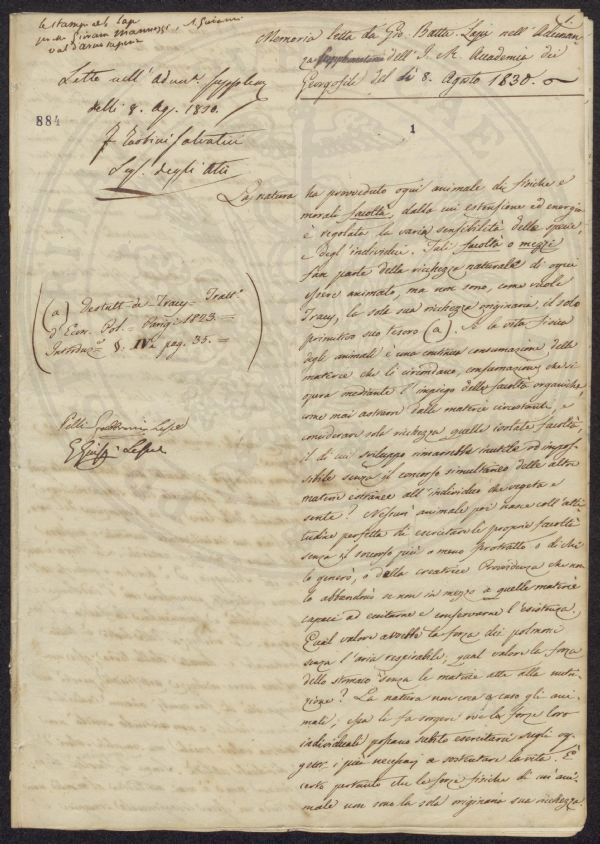 Memoria letta da Gio. Batta. Lapi nell'Adunan-
za dell'I. R. Accademia dei
Georgofili del dì 8. Agosto 1830.
Letto nell'adunza
delli 8. Ag. 1830.
Seg. degli Atti
884
1
La natura ha provveduto ogni animale di fisiche e
morali facoltà, dalla cui estensione ed energia
è regolata la varia sensibilità delle specie,
e degl'individui. Tali facoltà o mezzi
fan parte della ricchezza naturale di ogni
essere animato, ma non sono, come vuole
Tracy, la sola sua ricchezza originaria, il solo
primitivo suo tesoro (a). Se la vita fisica
degli animali è una continua consumazione delle
materie che li circondano, consumazione che si
opera mediante l'impiego delle facoltà organiche,
come mai astrarre dalle materie circostanti, e
considerare sola ricchezza quelle isolate facoltà,
il di cui sviluppo rimarrebbe inutile ed impos-
sibile senza il concorso simultaneo delle altre
materie estranee all'individuo che vegeta e
sente? Nessun animale poi nasce coll'atti-
tudine perfetta di esercitare le proprie facoltà
senza il soccorso più o meno protratto o di chi
lo generò, o della creatrice Provvidenza che non
lo abbandonò se non in mezzo a quelle materie
capaci ad eccitarne e conservarne l'esistenza.
Qual valore avrebbe la forza dei polmoni
senza l'aria respirabile, qual valore la forza
dello stomaco senza le materie atte alla nutri-
zione? La natura non crea a caso gli ani-
mali; essa le fa sorgere ove le forze loro
individuali possano subito esercitarsi sugli og-
getti i più necessarj a sostentare la vita. È
certo pertanto che le forze fisiche di un'ani-
male non sono la sola originaria sua ricchezza.
(a) Destutt-de-Tracy= Tratt.o
d'Econ. Pol.= Parigi 1823.=
Introduz.e §. IV.o pag. 35.=